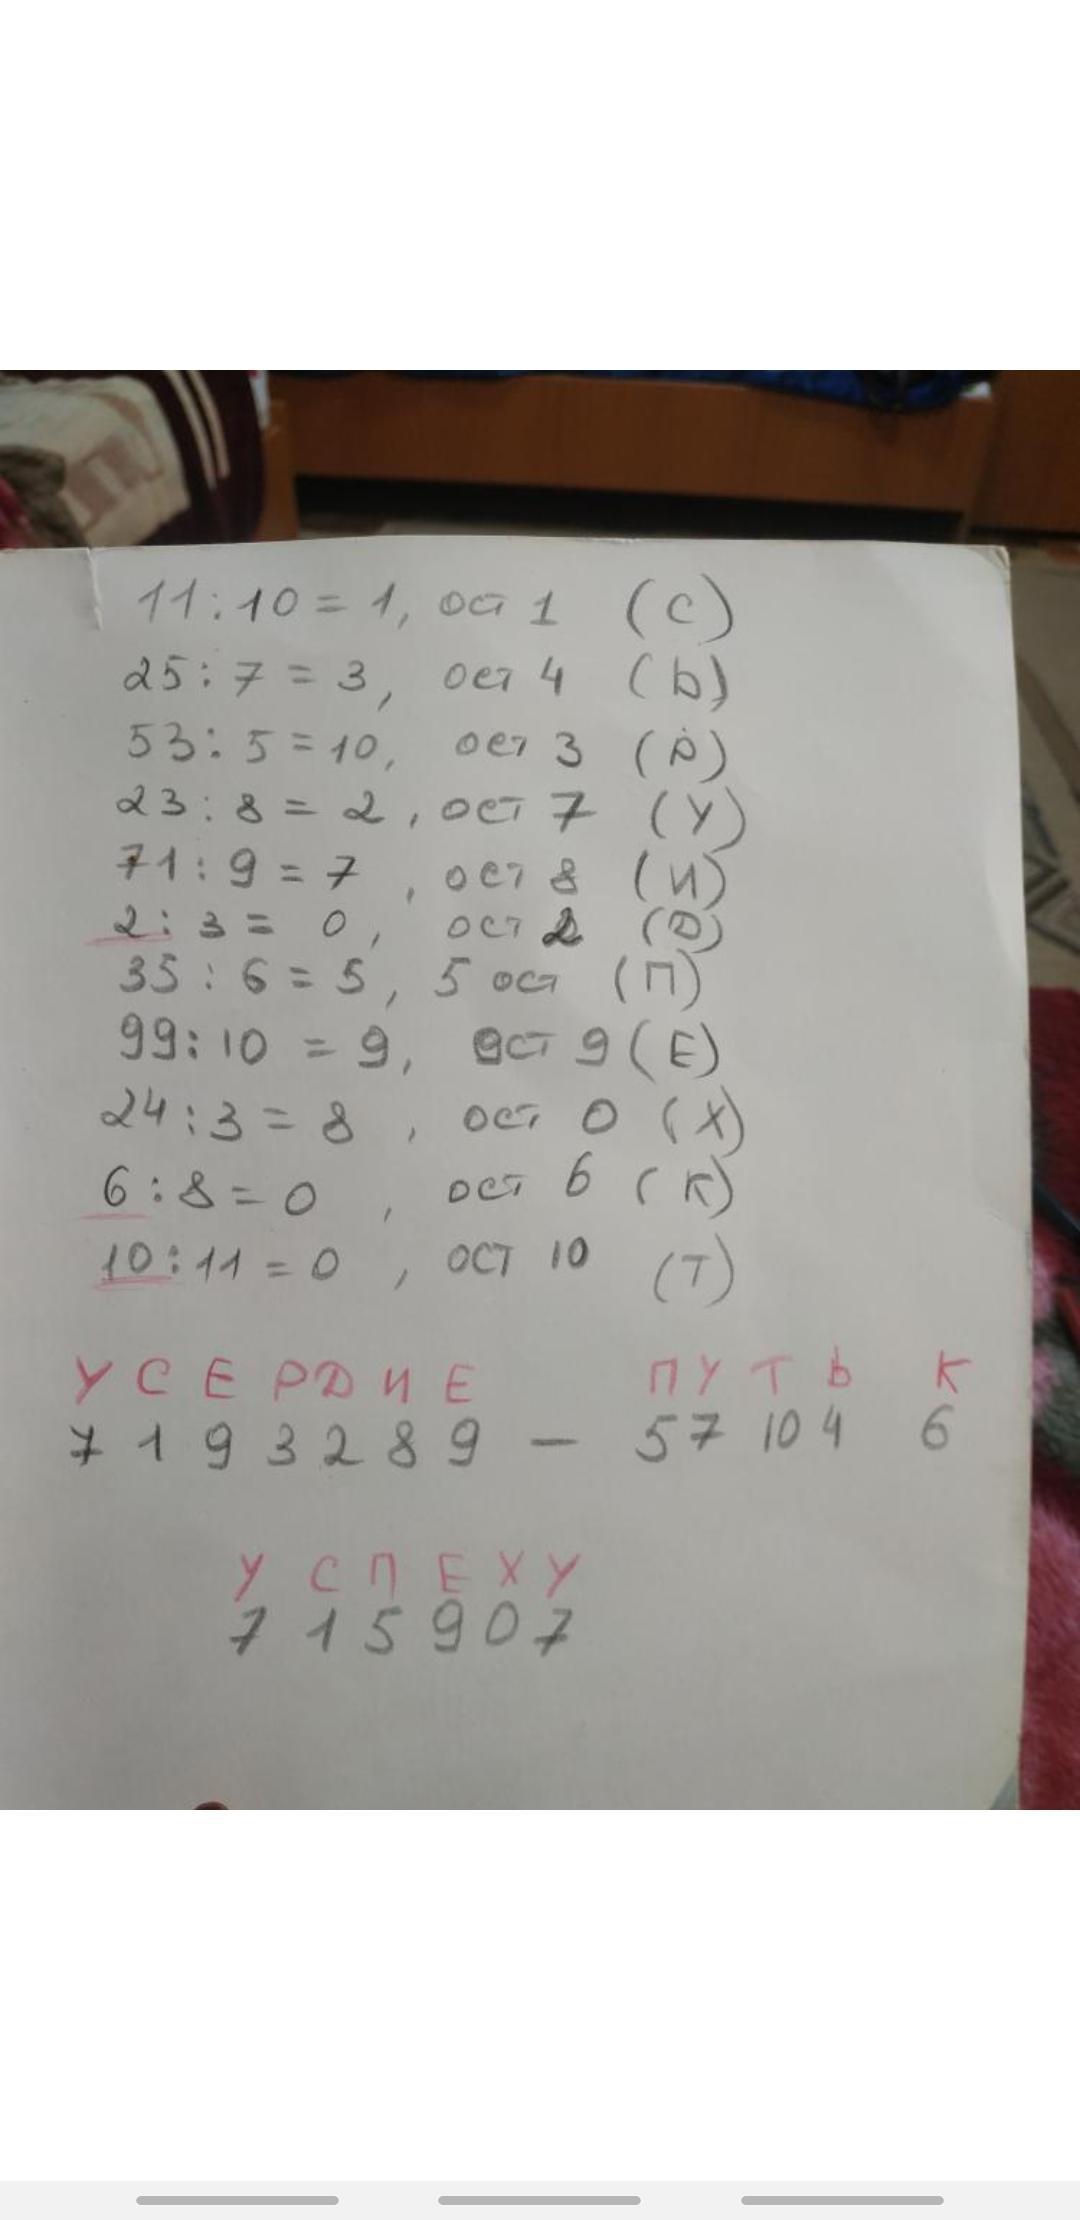 11:10=1, ост 1 (С)
25:7=3, ост 4 (Ь)
53:5=10, ост 3 (Р)
23:8=2, ост 7 (У)
71:9=7, ост 8 (И)
2:3=0, ост 2 (Д)
35:6=5, 5 ост (П)
99:10=9, ост 9 (Е)
24:3=8, ост 0 (Х)
6:8=0, ост 6 (К)
10:11=0, ост 10 (Т)
УСЕРДИЕ ПУТЬ К
7193289 - 57 10 4 6
УСПЕХУ
715907